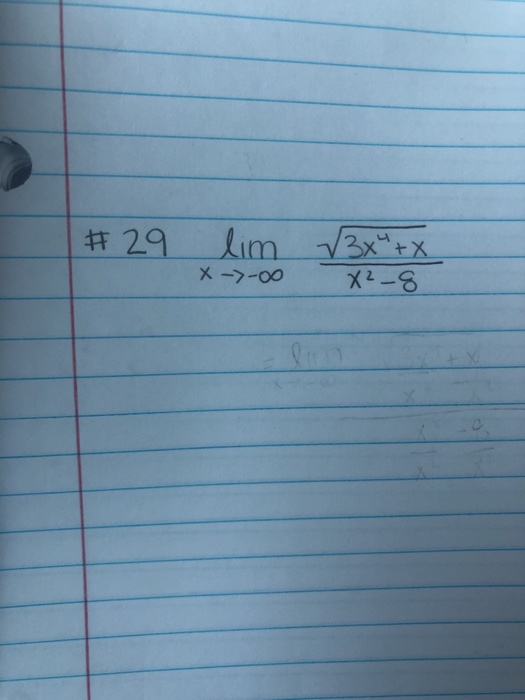 # 29 lim x→-∞ √(3x⁴+x) / (x²-8)
= lim